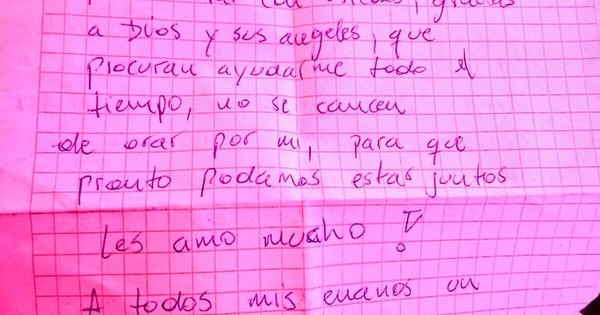 gracias
a Dios y sus angeles, que
procuran ayudarme todo el
tiempo, no se cancen
de orar por mi, para que
pronto podamos estar juntos
Les amo mucho!
A todos mis enanos un